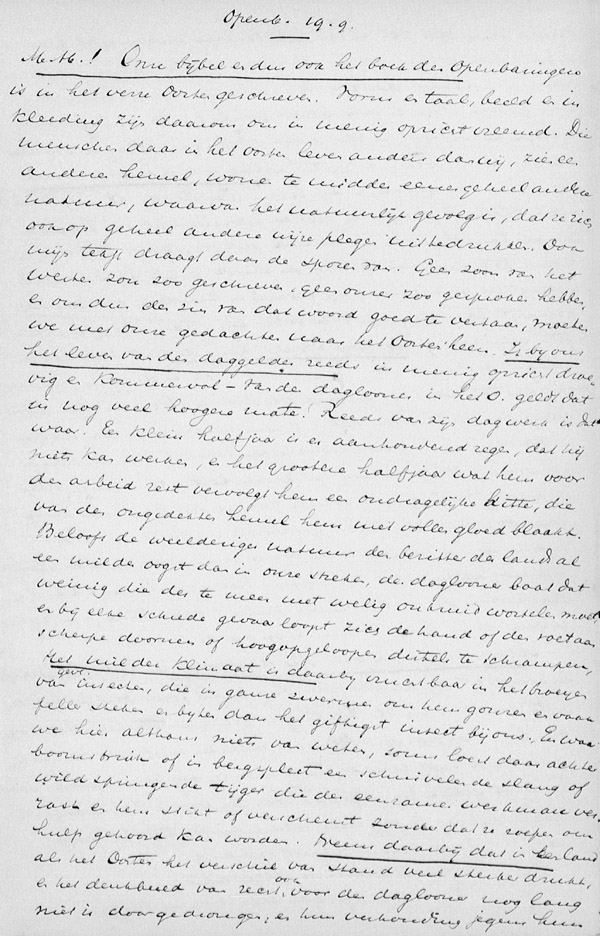 Openb. 19.9.
M.H.! Onze bijbel en dus ook het boek der Openbaringen
is in het verre Oosten geschreven. Vorm en taal, beeld en in
kleeding zijn daarom ons in menig opzicht vreemd. Die
menschen daar in het oosten leven anders dan wij, zien een
anderen hemel, wonen te midden eener geheel andere
natuur, waarvan het natuurlijk gevolg is, dat ze zich
ook op geheel andere wijze plegen uit te drukken. Ook
mijn tekst draagt daar de sporen van. Geen zoon van het
westen zou zoo geschreven, geen onzer zoo gesproken hebben
en om dus den zin van dat woord goed te verstaan, moeten
we met onze gedachten naar het Oosten heen. Is bij ons
het leven van den daggelder reeds in menig opzicht droe-
vig en kommervol – van den daglooner in het O. geldt dat
in nog veel hoogere mate! Reeds van zijn dagwerk is dat
waar. Een klein halfjaar is er aanhoudend regen, dat hij
niets kan werken, en het grootere halfjaar wat hem voor
den arbeid rest vervolgt hem een ondragelijke hitte, die
van den ongedekten hemel hem met vollen gloed blaakt.
Belooft de weelderiger natuur den bezitter der land al
een milder oogst dan in onze streken, den daglooner baat dat
weinig die des te meer met welig onkruid worstelen moet,
en bij elke schrede gevaar loopt zich de hand of den voet aan
scherpe doornen of hoogopgeloopen distels te schrampen,
Het milder klimaat is daarbij vruchtbaar in het broeyen
van insecten, die in gansche zwermen om hem gonzen en waar
feller steken en bijten dan het giftigst insect bij ons. En waar
we hier althans niets van weten, soms loert daar achter
boomstruik of in bergspleet een schuivelende slang of
wild springende tijger die den eenzamen werkman ver-
rast en hem stikt of verscheurt zonder dat ze roepen om
hulp gehoord kan worden. Neem daarbij dat in een land
als het Oosten het verschil van stand veel sterker drukt,
en het denkbeeld van recht, ook voor den daglooner nog lang
niet is doorgedrongen; en hun verhouding jegens hem